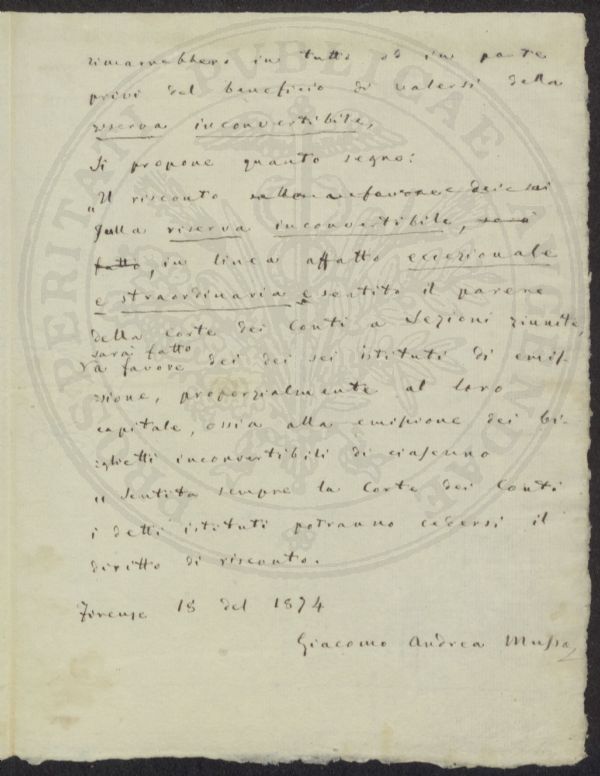 rimarrebbero in tutto od in parte
privi del beneficio di valersi della
riserva inconvertibile,
Si propone quanto segue:
"Il risconto sulla a favore dei sei
sulla riserva inconvertibile, sarà
fatto, in linea affatto eccezionale
e straordinaria e sentito il parere
della corte dei Conti a Sezioni riunite,
sarai fatto
a favore dei dei sei istituti di emis-
sione, proporzialmente al loro
capitale, ossia alla emissione dei bi-
glietti inconvertibili di ciascuno
" Sentita sempre la Corte dei Conti
i detti istituti potranno cedersi il
diritto di risconto.
Firenze 18 del 1874
Giacomo Andrea Mussa
PROSPERITATI PUBLICAE AUGENDAE